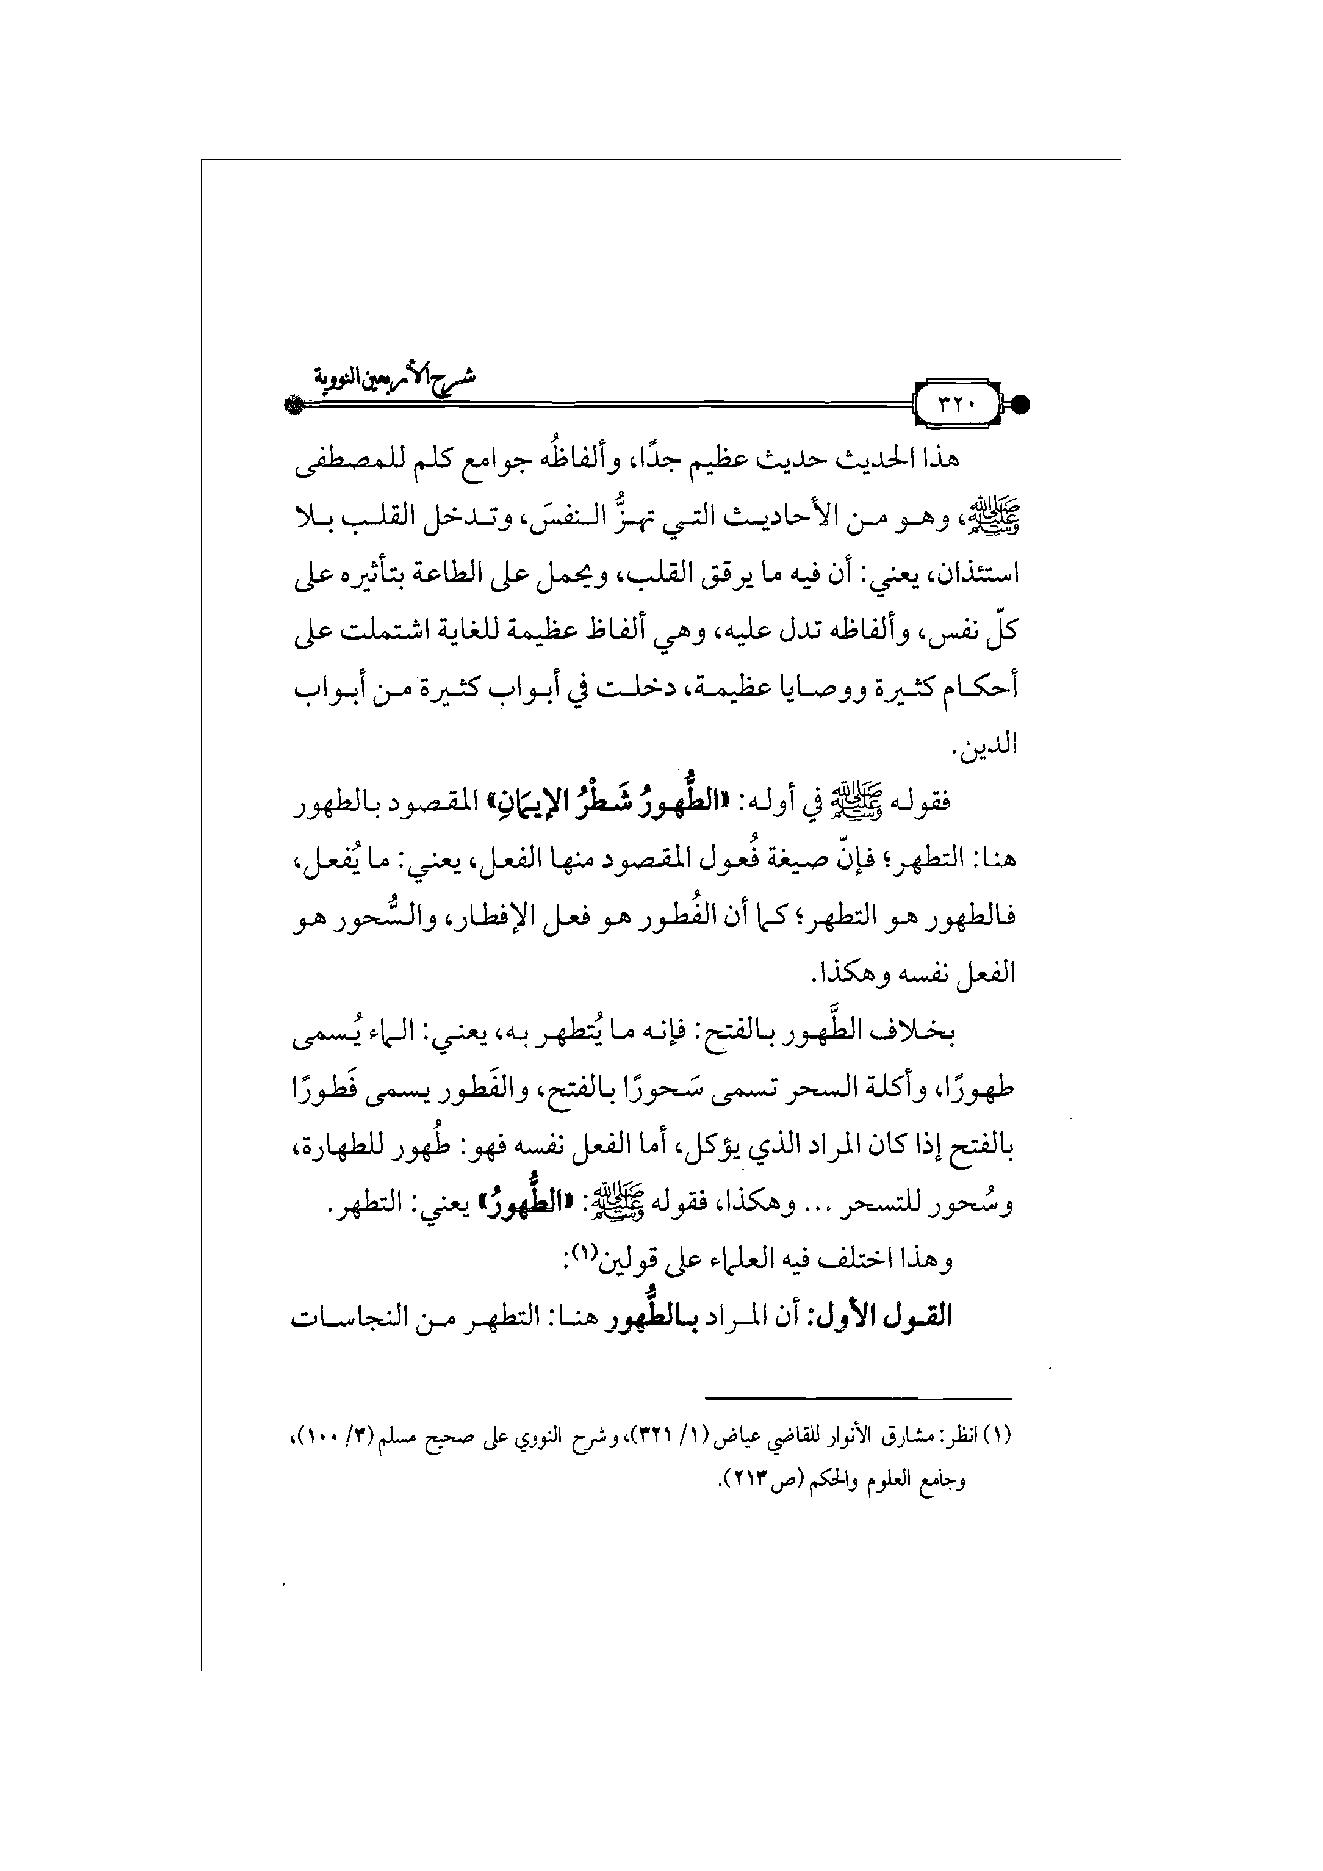 شرح الأربعين النووية
٣٢٠
هذا الحديث حديث عظيم جدًّا، وألفاظُه جوامع كلم للمصطفى
ﷺ، وهو من الأحاديث التي تهزُّ النفسَ، وتدخل القلب بلا
استئذان، يعني: أن فيه ما يرقق القلب، ويحمل على الطاعة بتأثيره على
كلّ نفس، وألفاظه تدل عليه، وهي ألفاظ عظيمة للغاية اشتملت على
أحكام كثيرة ووصايا عظيمة، دخلت في أبواب كثيرة من أبواب
الدين.
فقوله ﷺ في أوله: «الطُّهورُ شَطْرُ الإيمَانِ» المقصود بالطهور
هنا: التطهر؛ فإنّ صيغة فُعول المقصود منها الفعل، يعني: ما يُفعل،
فالطهور هو التطهر؛ كما أن الفُطور هو فعل الإفطار، والسُّحور هو
الفعل نفسه وهكذا.
بخلاف الطَّهور بالفتح: فإنه ما يُتطهر به، يعني: الماء يُسمى
طهورًا، وأكلة السحر تسمى سَحورًا بالفتح، والفَطور يسمى فَطورًا
بالفتح إذا كان المراد الذي يؤكل، أما الفعل نفسه فهو: طُهور للطهارة،
وسُحور للتسحر ... وهكذا، فقوله ﷺ: «الطُّهورُ» يعني: التطهر.
وهذا اختلف فيه العلماء على قولين(١):
القول الأول: أن المراد بالطُّهور هنا: التطهر من النجاسات
(١) انظر: مشارق الأنوار للقاضي عياض (١/ ٣٢١)، وشرح النووي على صحيح مسلم (٣/ ١٠٠)،
وجامع العلوم والحكم (ص٢١٣).